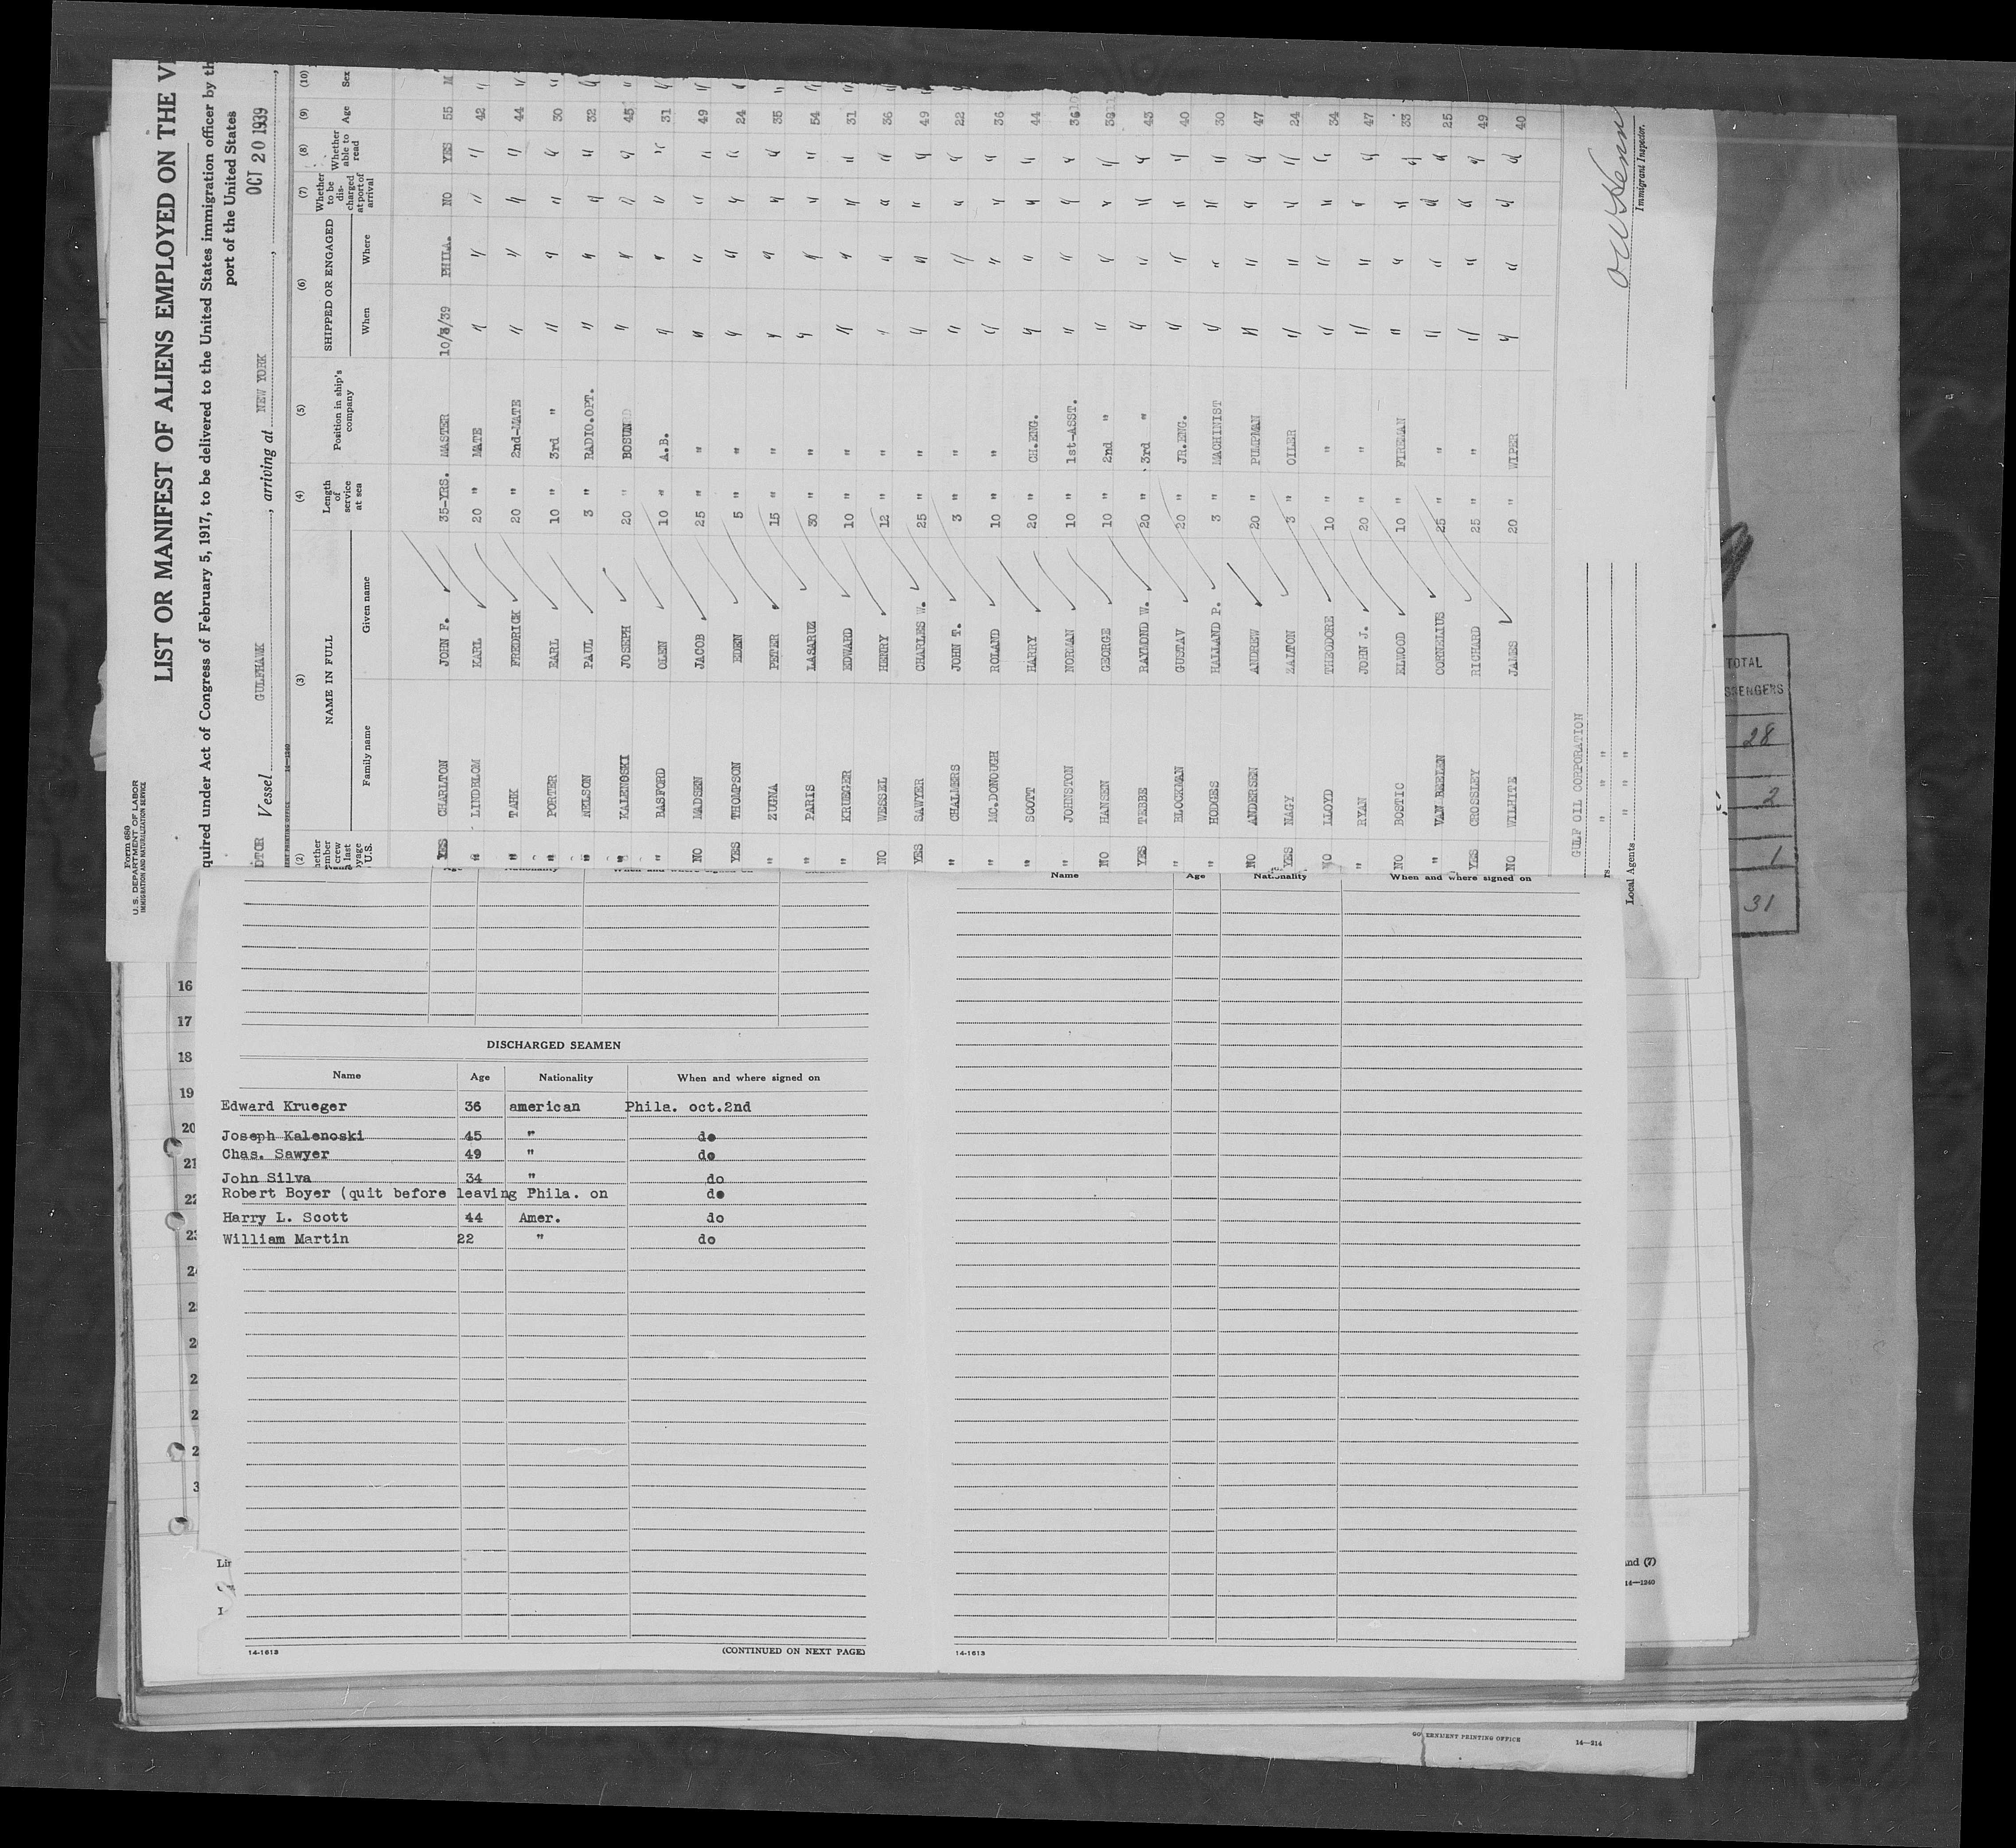 Form 680
U. S. DEPARTMENT OF LABOR
IMMIGRATION AND NATURALIZATION SERVICE
LIST OR MANIFEST OF ALIENS EMPLOYED ON THE
quired under Act of Congress of February 5, 1917, to be delivered to the United States immigration officer by th
port of the United States
Vessel GULFHAWK, arriving at NEW YORK, OCT 20 1939,
(2) (3) (4) (5) (6) (7) (8) (9) (10)
NAME IN FULL Length of service at sea Position in ship's company SHIPPED OR ENGAGED Whether to be discharged at port of arrival Whether able to read Age Sex
Family name Given name When Where
YES CHARLTON JOHN F. 35-YRS. MASTER 10/3/39 PHILA. NO YES 55 M
" LINDBLOM KARL 20 " MATE " " " " 42 "
" TAHK FREDRICK 20 " 2nd-MATE " " " " 44 "
" PORTER EARL 10 " 3rd " " " " " 30 "
" NELSON PAUL 3 " RADIO.OPT. " " " " 32 "
" KALENOSKI JOSEPH 20 " BOSUN " " " " 45 "
" BASFORD OLEN 10 " A.B. " " " " 31 "
NO MADSEN JACOB 25 " " " " " " 49 "
YES THOMPSON EDEN 5 " " " " " " 24 "
" ZUGNA PETER 15 " " " " " " 35 "
" PARIS LASARUZ 30 " " " " " " 54 "
" KRUEGER EDWARD 10 " " " " " " 31 "
NO WESSEL HENRY 12 " " " " " " 36 "
YES SAWYER CHARLES W. 25 " " " " " " 49 "
" CHALMERS JOHN T. 3 " " " " " " 22 "
" MC.DONOUGH ROLAND 10 " " " " " " 36
" SCOTT HARRY 20 " CH.ENG. " " " " 44
" JOHNSTON NORMAN 10 " 1st-ASST. " " " " 36
NO HANSEN GEORGE 10 " 2nd " " " " " 38
YES TEBBE RAYMOND W. 20 " 3rd " " " " " 43
" BLOCKMAN GUSTAV 20 " JR.ENG. " " " " 40
" HODGES HALLAND P. 3 " MACHINIST " " " " 30
NO ANDERSEN ANDREW 20 " PUMPMAN " " " " 47
YES NAGY ZALTON 3 " OILER " " " " 24
NO LLOYD THEODORE 10 " " " " " " 34
" RYAN JOHN J. 20 " " " " " " 47
NO BOSTIC ELWOOD 10 " FIREMAN " " " " 33
" VAN BEELEN CORNELIUS 25 " " " " " " 25
YES CROSSLEY RICHARD 25 " " " " " " 49
NO WILHITE JAMES 20 " WIPER " " " " 40
GULF OIL CORPORATION
" " "
Local Agents " " "
Immigrant Inspector.
TOTAL
28
2
1
31
Name Age Nationality When and where signed on
16
17
18
19
20
21
DISCHARGED SEAMEN
Name Age Nationality When and where signed on
Edward Krueger 36 american Phila. oct.2nd
Joseph Kalenoski 45 " do
Chas. Sawyer 49 " do
John Silva 34 " do
Robert Boyer (quit before leaving Phila. on do
Harry L. Scott 44 Amer. do
William Martin 22 " do
14-1613 (CONTINUED ON NEXT PAGE)
14-1613
and (7)
14—1240
GOVERNMENT PRINTING OFFICE 14—214